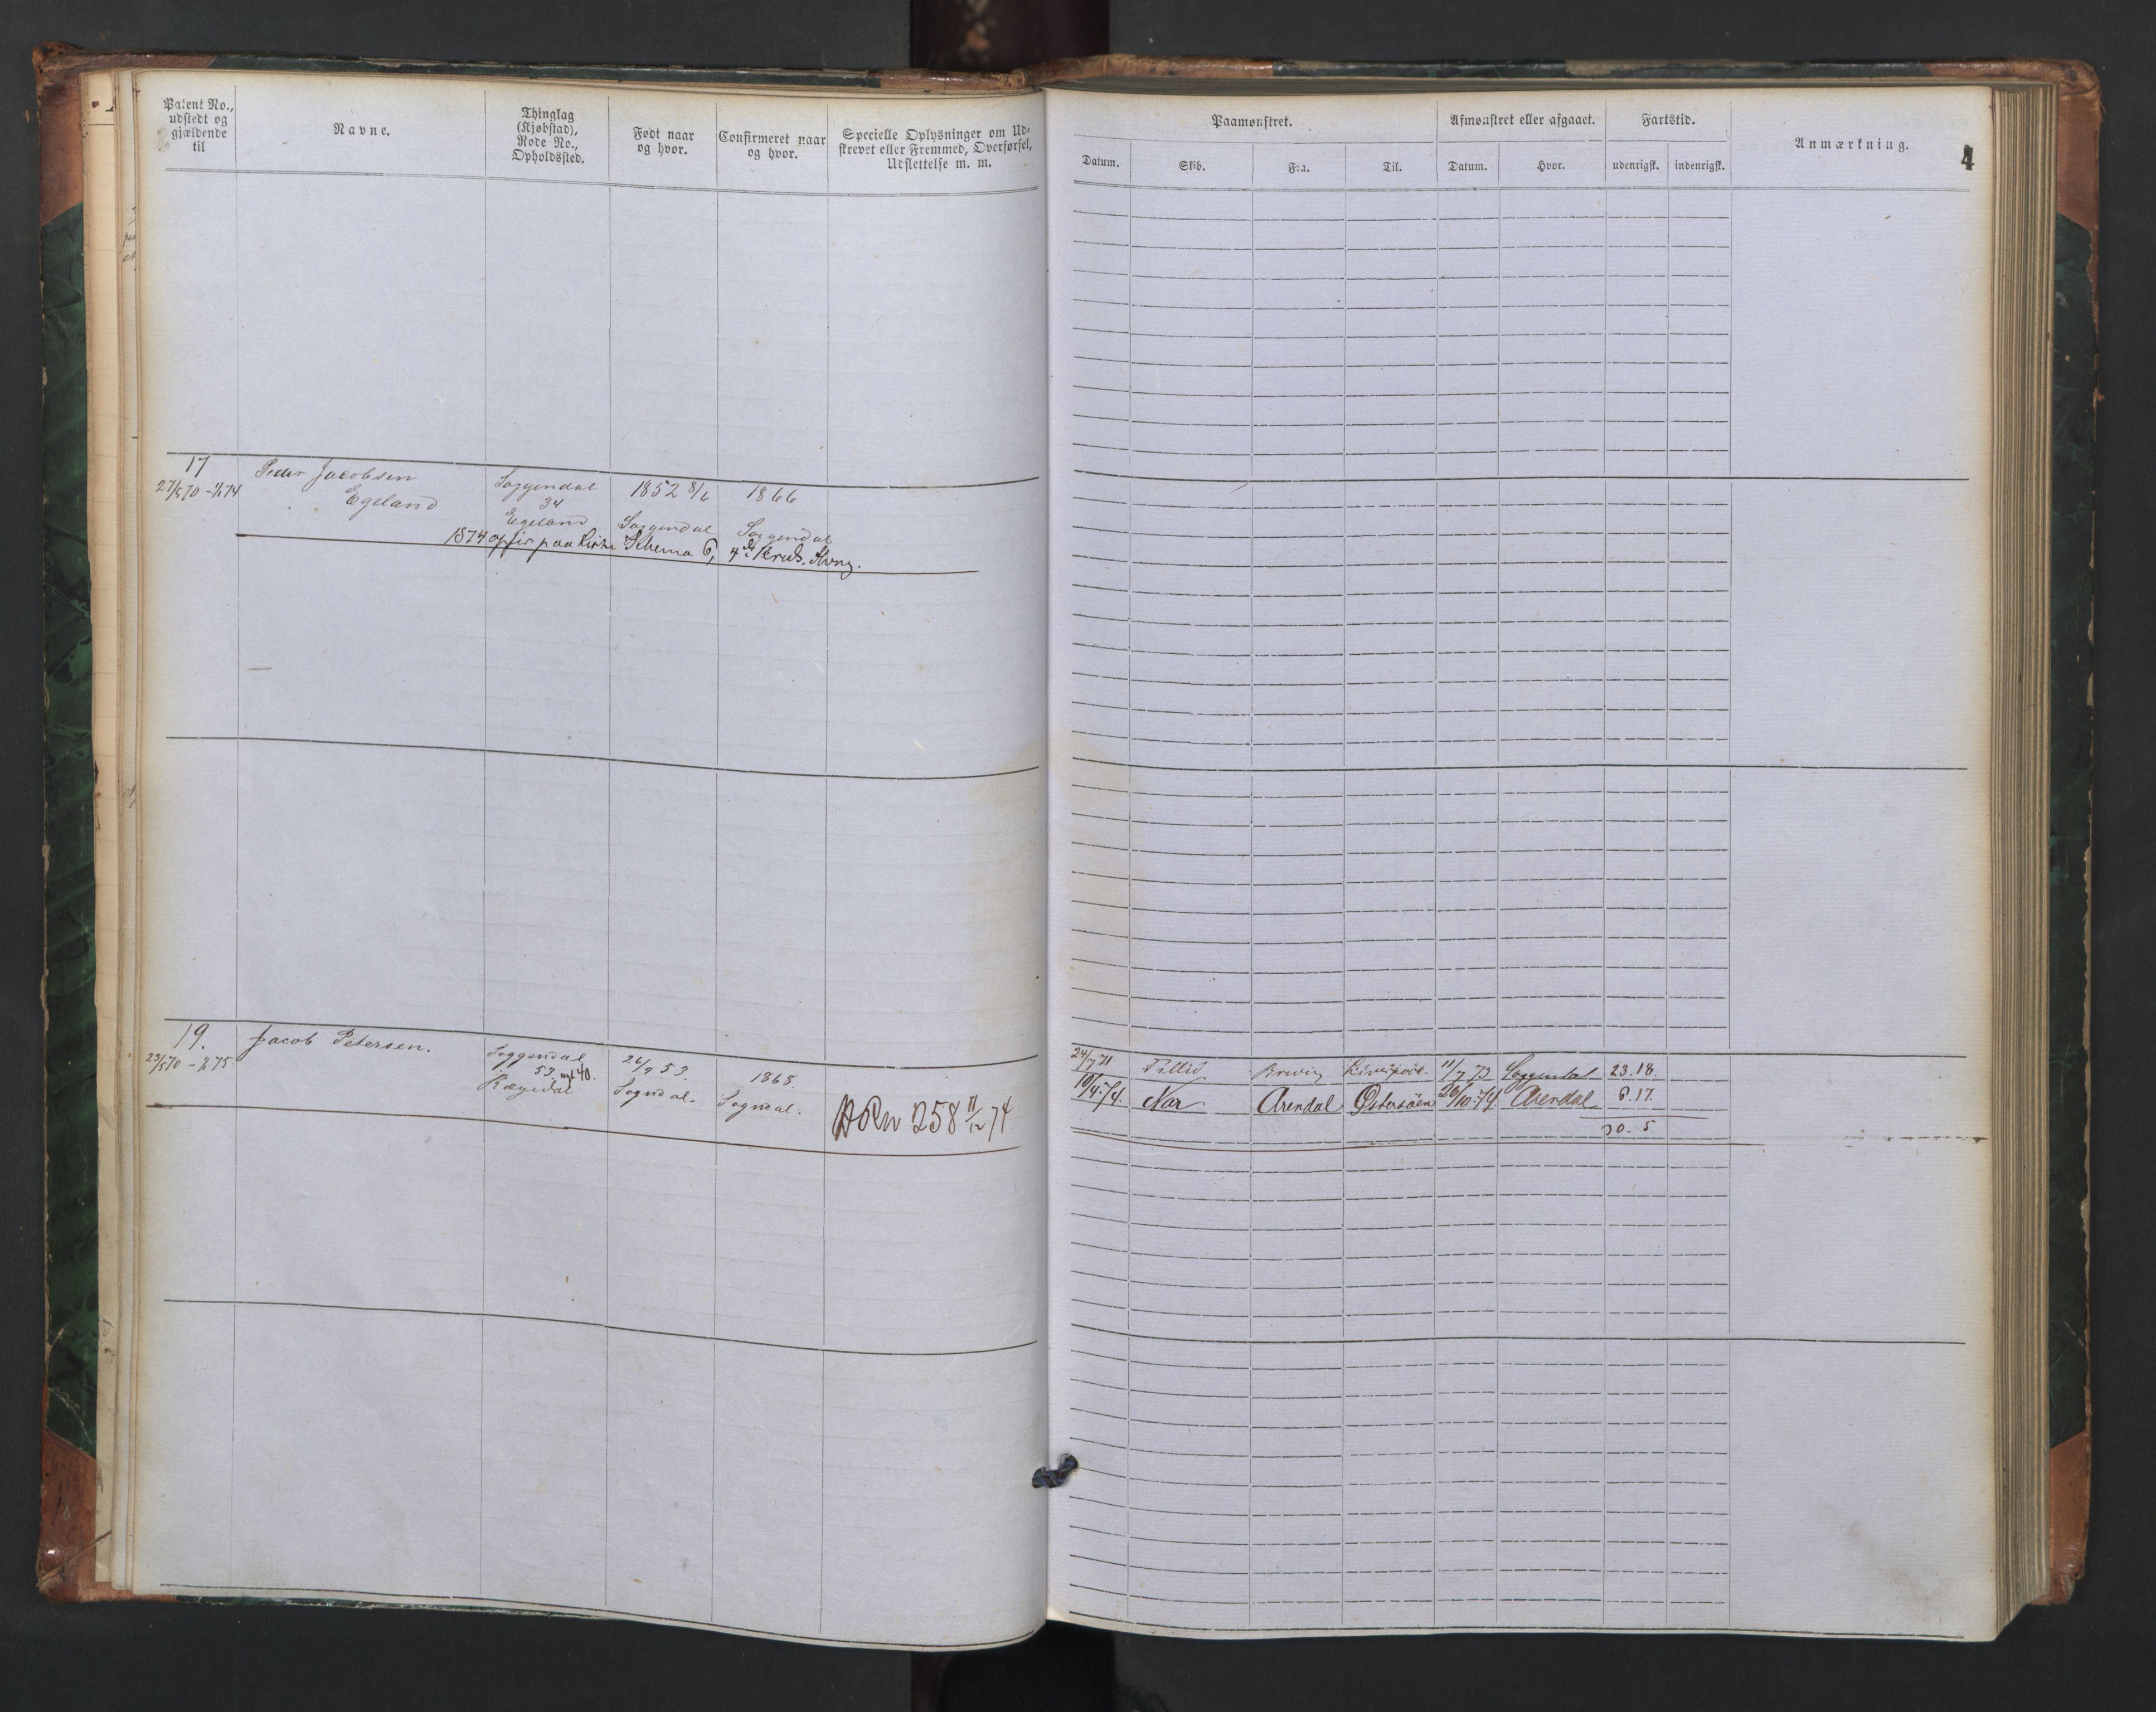 Patent No.,
udstedt og
gjældende
til
Navne.
Thinglag
(Kjøbstad),
Rode No.,
Opholdssted.
Født naar
og hvor.
Confirmeret naar
og hvor.
Specielle Oplysninger om Ud-
skrevet eller Fremmed, Overførsel,
Udslettelse m. m.
17
27/5 70 - 1/1 74
Peder Jacobsen
Egeland
Soggendal
34
Egeland
1852 8/6
Soggendal
1866
Soggendal
1874 opfør paa Schema 6,
19.
23/5 70 - 1/1 75
Jacob Petersen.
Soggendal
53. nyt 40.
Rægedal
26/9 53.
Sogndal.
1868.
Sogndal.
258 11/12 74
Paamønstret.
Afmønstret eller afgaaet.
Fartstid.
Anmærkning.
4
Datum.
Skib.
Fra.
Til.
Datum.
Hvor.
udenrigsk.
indenrigsk.
24/7 71
Brevig
Liverpool
11/7 73
Soggendal
23.18.
10/4.74.
Nor
Arendal
Østersøen
26/10.74
Arendal
6.17.
30. 5